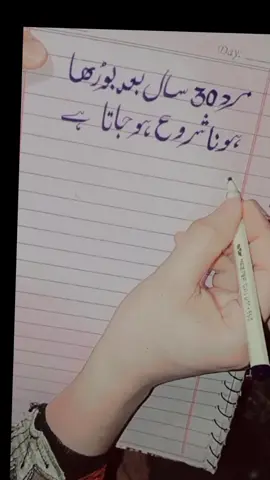 Day.
مرد 30 سال بعد بوڑھا
ہونا شروع ہو جاتا ہے